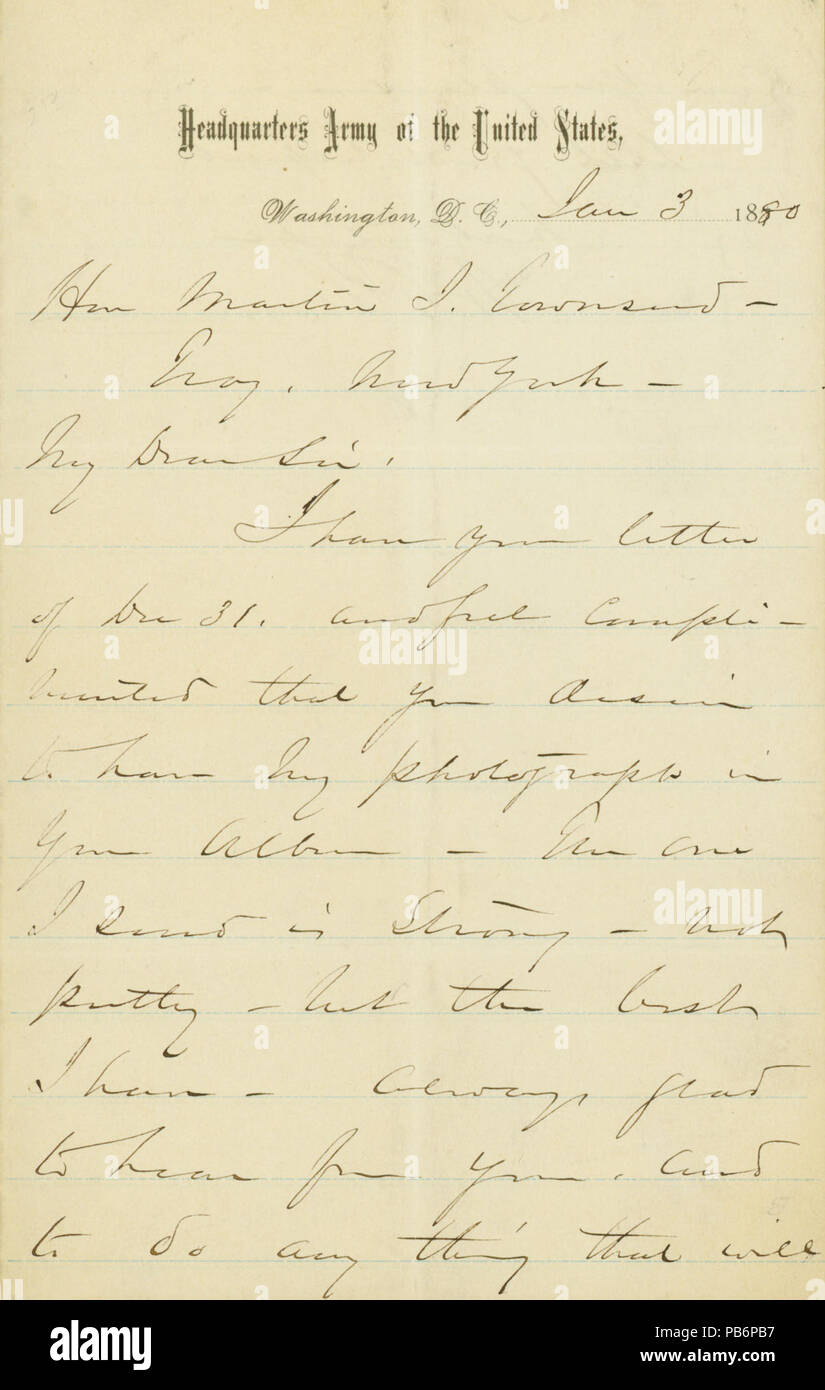 Headquarters Army of the United States,
Washington, D. C., Jan 3 1880
Hon Martin I. Townsend -
Troy. New York -
My Dear Sir,
I have your letter
of Dec 31. and feel compli-
mented that you desire
to have my photograph in
your Album - The one
I send is strong - not
pretty - but the best
I have - Always glad
to hear from you. and
to do any thing that will
alamy
alamy
Image ID: PB6PB7
www.alamy.com